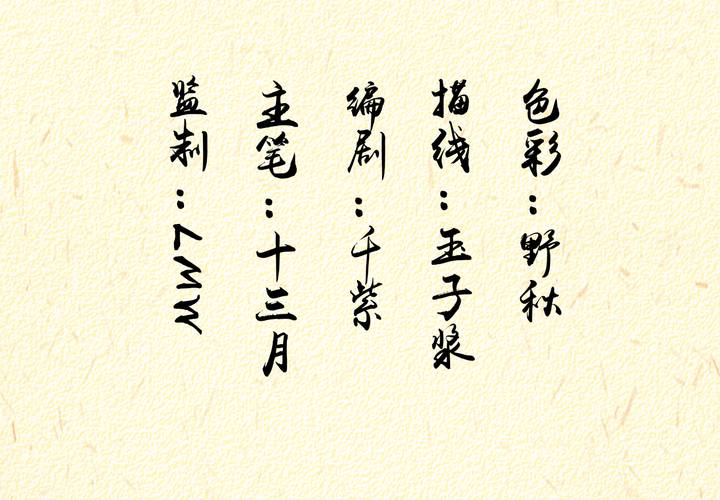 色彩：野秋
描线：玉子浆
编剧：千紫
主笔：十三月
监制：LMW